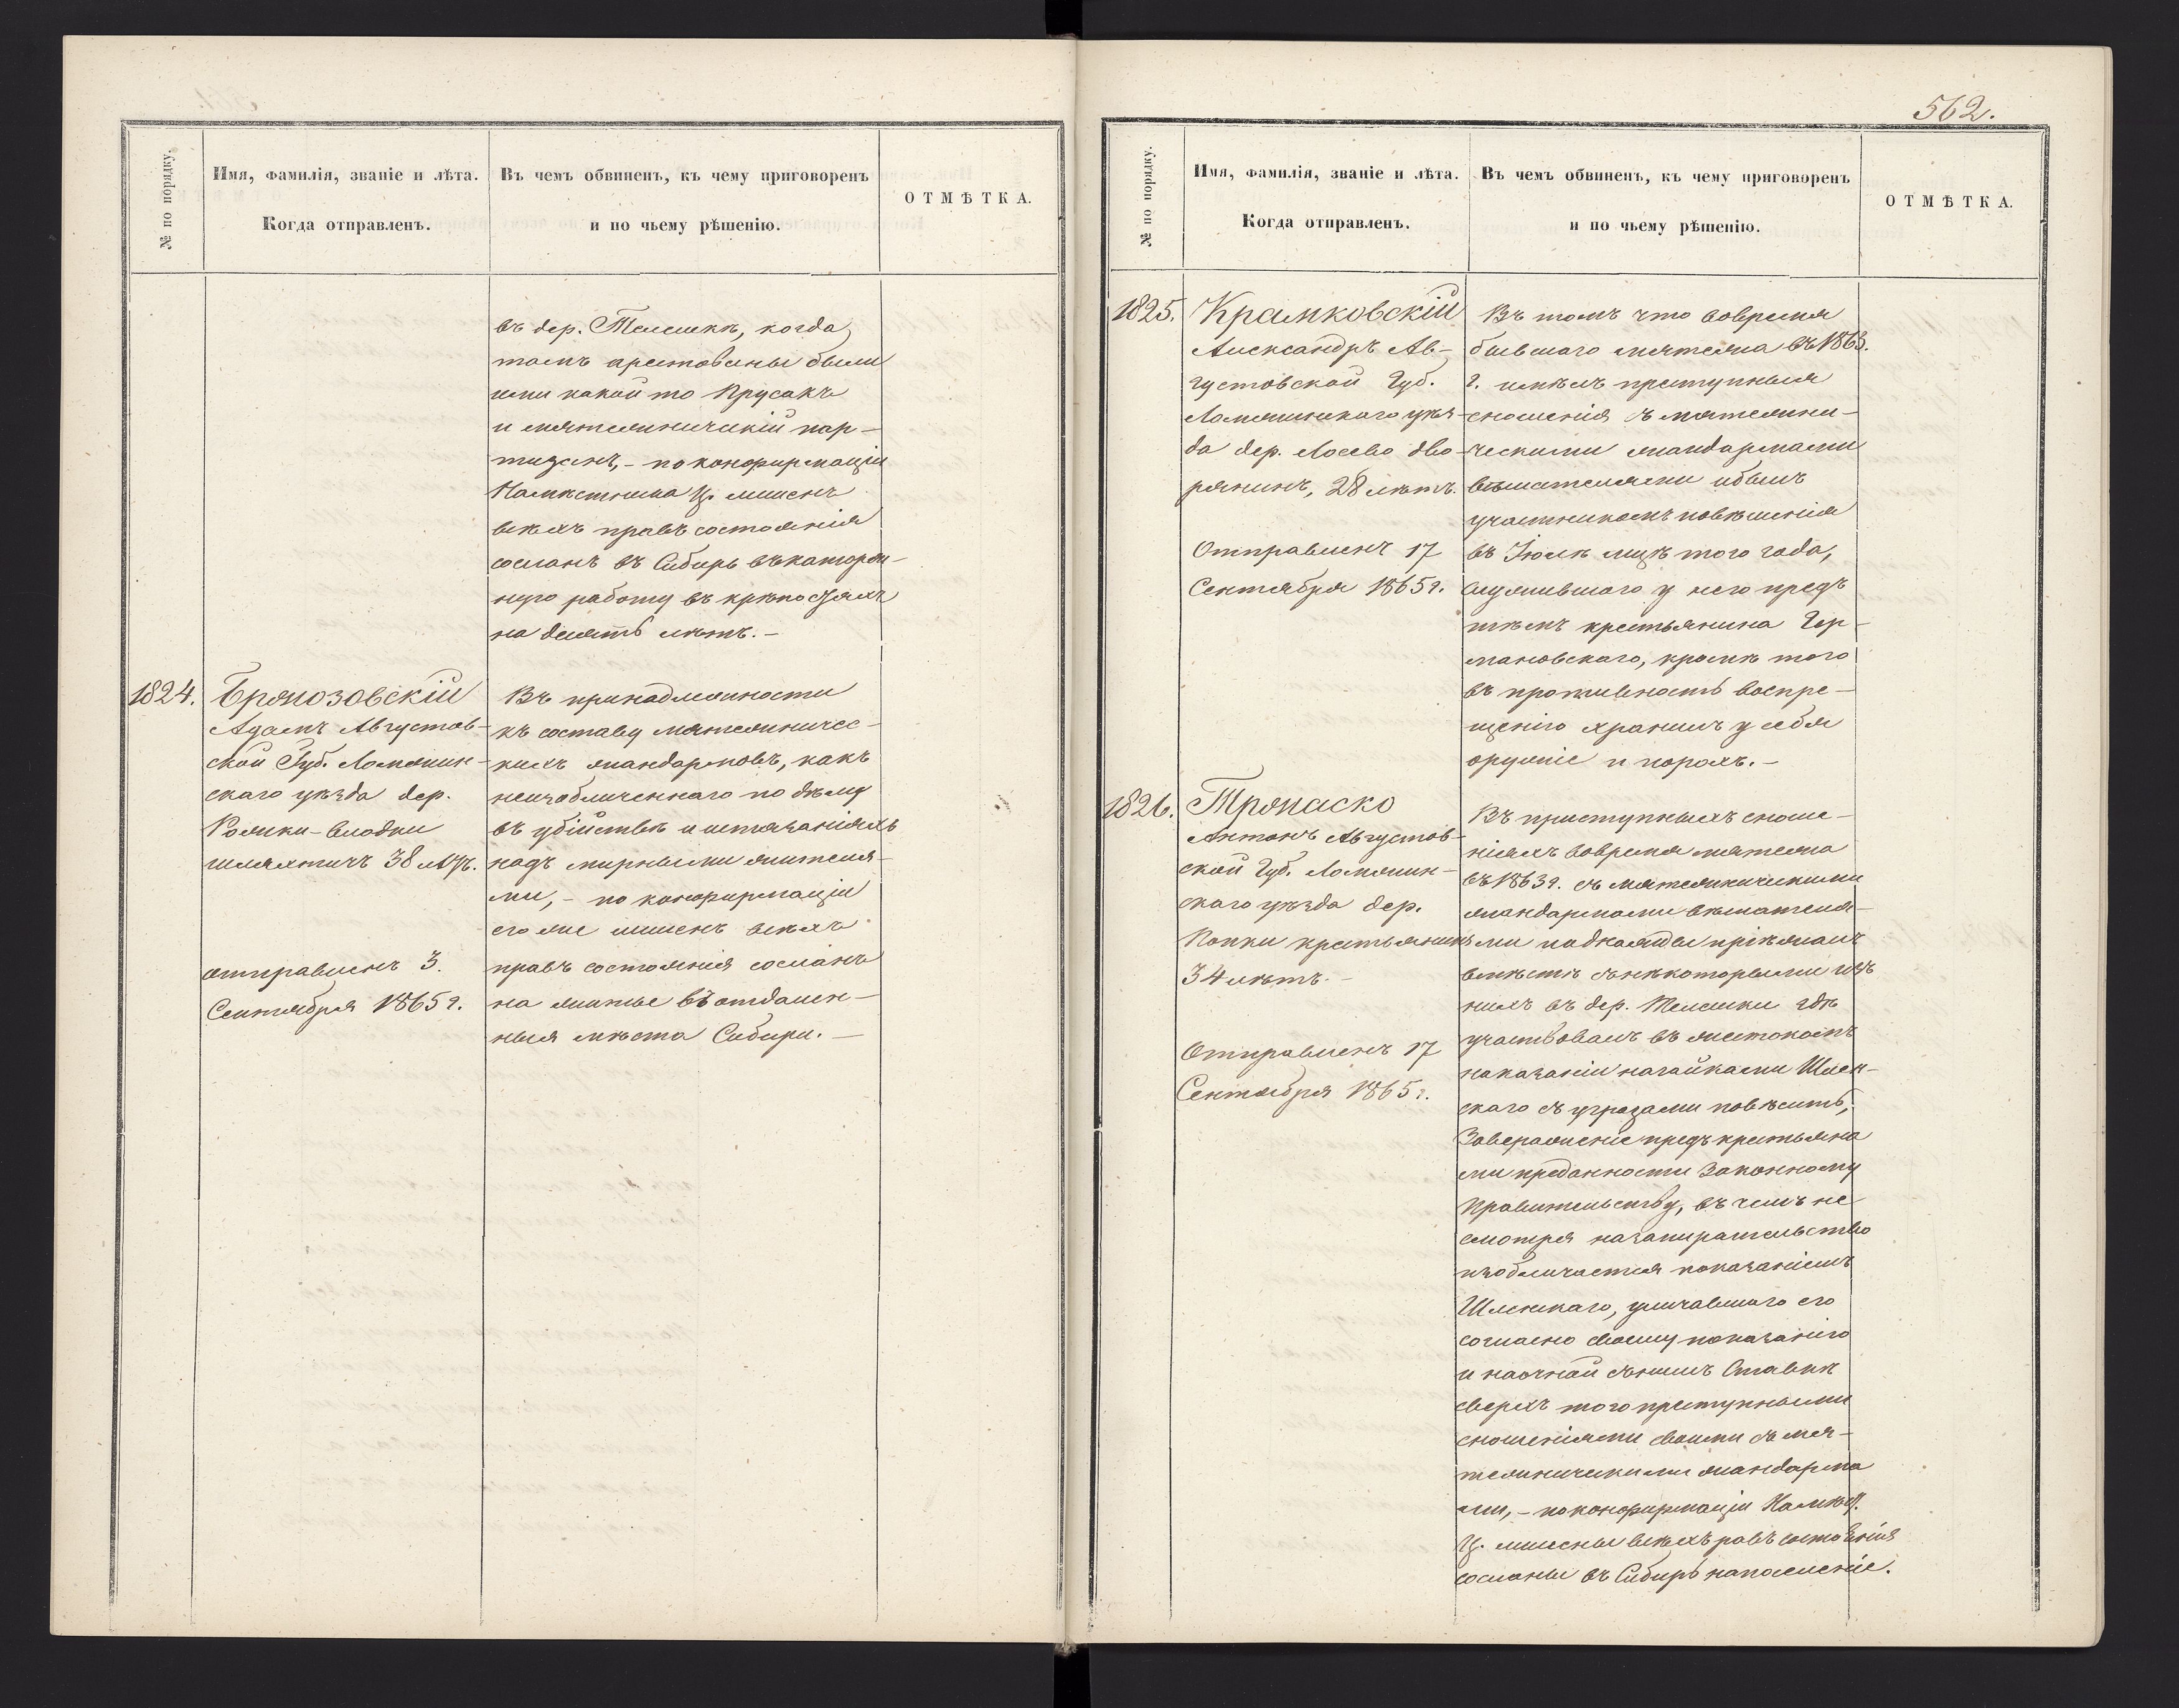 № по порядку.
Имя, фамилія, званіе и лѣта.
Когда отправленъ.
Въ чемъ обвиненъ, къ чему приговоренъ
и по чьему рѣшенію.
ОТМѢТКА.
въ дер. Телешки, когда
тамъ арестованы были
ими какой то Прусакъ
и мятежническій пар-
тизанъ, - по конфирмаціи
Намѣстника Ц. лишенъ
всѣхъ правъ состоянія
сосланъ въ Сибирь въ каторж-
ную работу въ крѣпостяхъ
на десять лѣтъ. -
1824.
Бржозовскій
Адамъ Августов-
ской Губ. Ломжин-
скаго уѣзда дер.
шляхтичъ 38 лѣтъ.
отправленъ 3.
Сентября 1865 г.
Въ принадлежности
къ составу мятежничес-
кихъ жандармовъ, какъ
неизобличеннаго по дѣлу
въ убійствѣ и истязаніяхъ
надъ мирными жителя-
ми, - по конфирмаціи
его же лишенъ всѣхъ
правъ состоянія сосланъ
на житье въ отдален-
ныя мѣста Сибири. -
562.
№ по порядку.
Имя, фамилія, званіе и лѣта.
Когда отправленъ.
Въ чемъ обвиненъ, къ чему приговоренъ
и по чьему рѣшенію.
ОТМѢТКА.
1825.
Крамковскій
Александръ Ав-
густовской Губ.
Ломжинскаго уѣз-
да дер. Лосево дво-
рянинъ, 28 лѣтъ.
Отправленъ 17
Сентября 1865 г.
Въ томъ что вовремя
бывшаго мятежа въ 1863.
г. имѣлъ преступныя
сношенія съ мятежни-
ческими жандармами
вѣшателями и былъ
участникомъ повѣшенія
въ Іюлѣ мцѣ того года,
служившаго у него предъ
тѣмъ крестьянина Гер-
мановскаго, кромѣ того
въ противность воспре-
щенію хранилъ у себя
оружіе и порохъ. -
1826.
Тржаско
Антонъ Августов-
ской Губ. Ломжин-
скаго уѣзда дер.
Конки крестьянинъ
34 лѣтъ. -
Отправленъ 17
Сентября 1865 г.
Въ преступныхъ сноше-
ніяхъ вовремя мятежа
въ 1863 г. съ мятежническими
жандармами вѣшателя-
ми и однажды пріѣзжалъ
вмѣстѣ съ нѣкоторыми изъ
нихъ въ дер. Телешки гдѣ
участвовалъ въ жестокомъ
наказаніи нагайками Шлен-
скаго съ угрозами повѣсить,
За вераженіе предъ крестьяна
ми преданности Законному
Правительству, въ чемъ не
смотря на запирательство
изобличается показаніемъ
Шленскаго, уличавшаго его
согласно своему показанію
и на очной съ нимъ Ставкѣ
сверхъ того преступными
сношеніями своими съ мя-
тежническими жандарма
ми, - по конфирмаціи Намѣст.
Ц. лишены всѣхъ равъ состоянія
сосланы въ Сибирь на поселеніе.